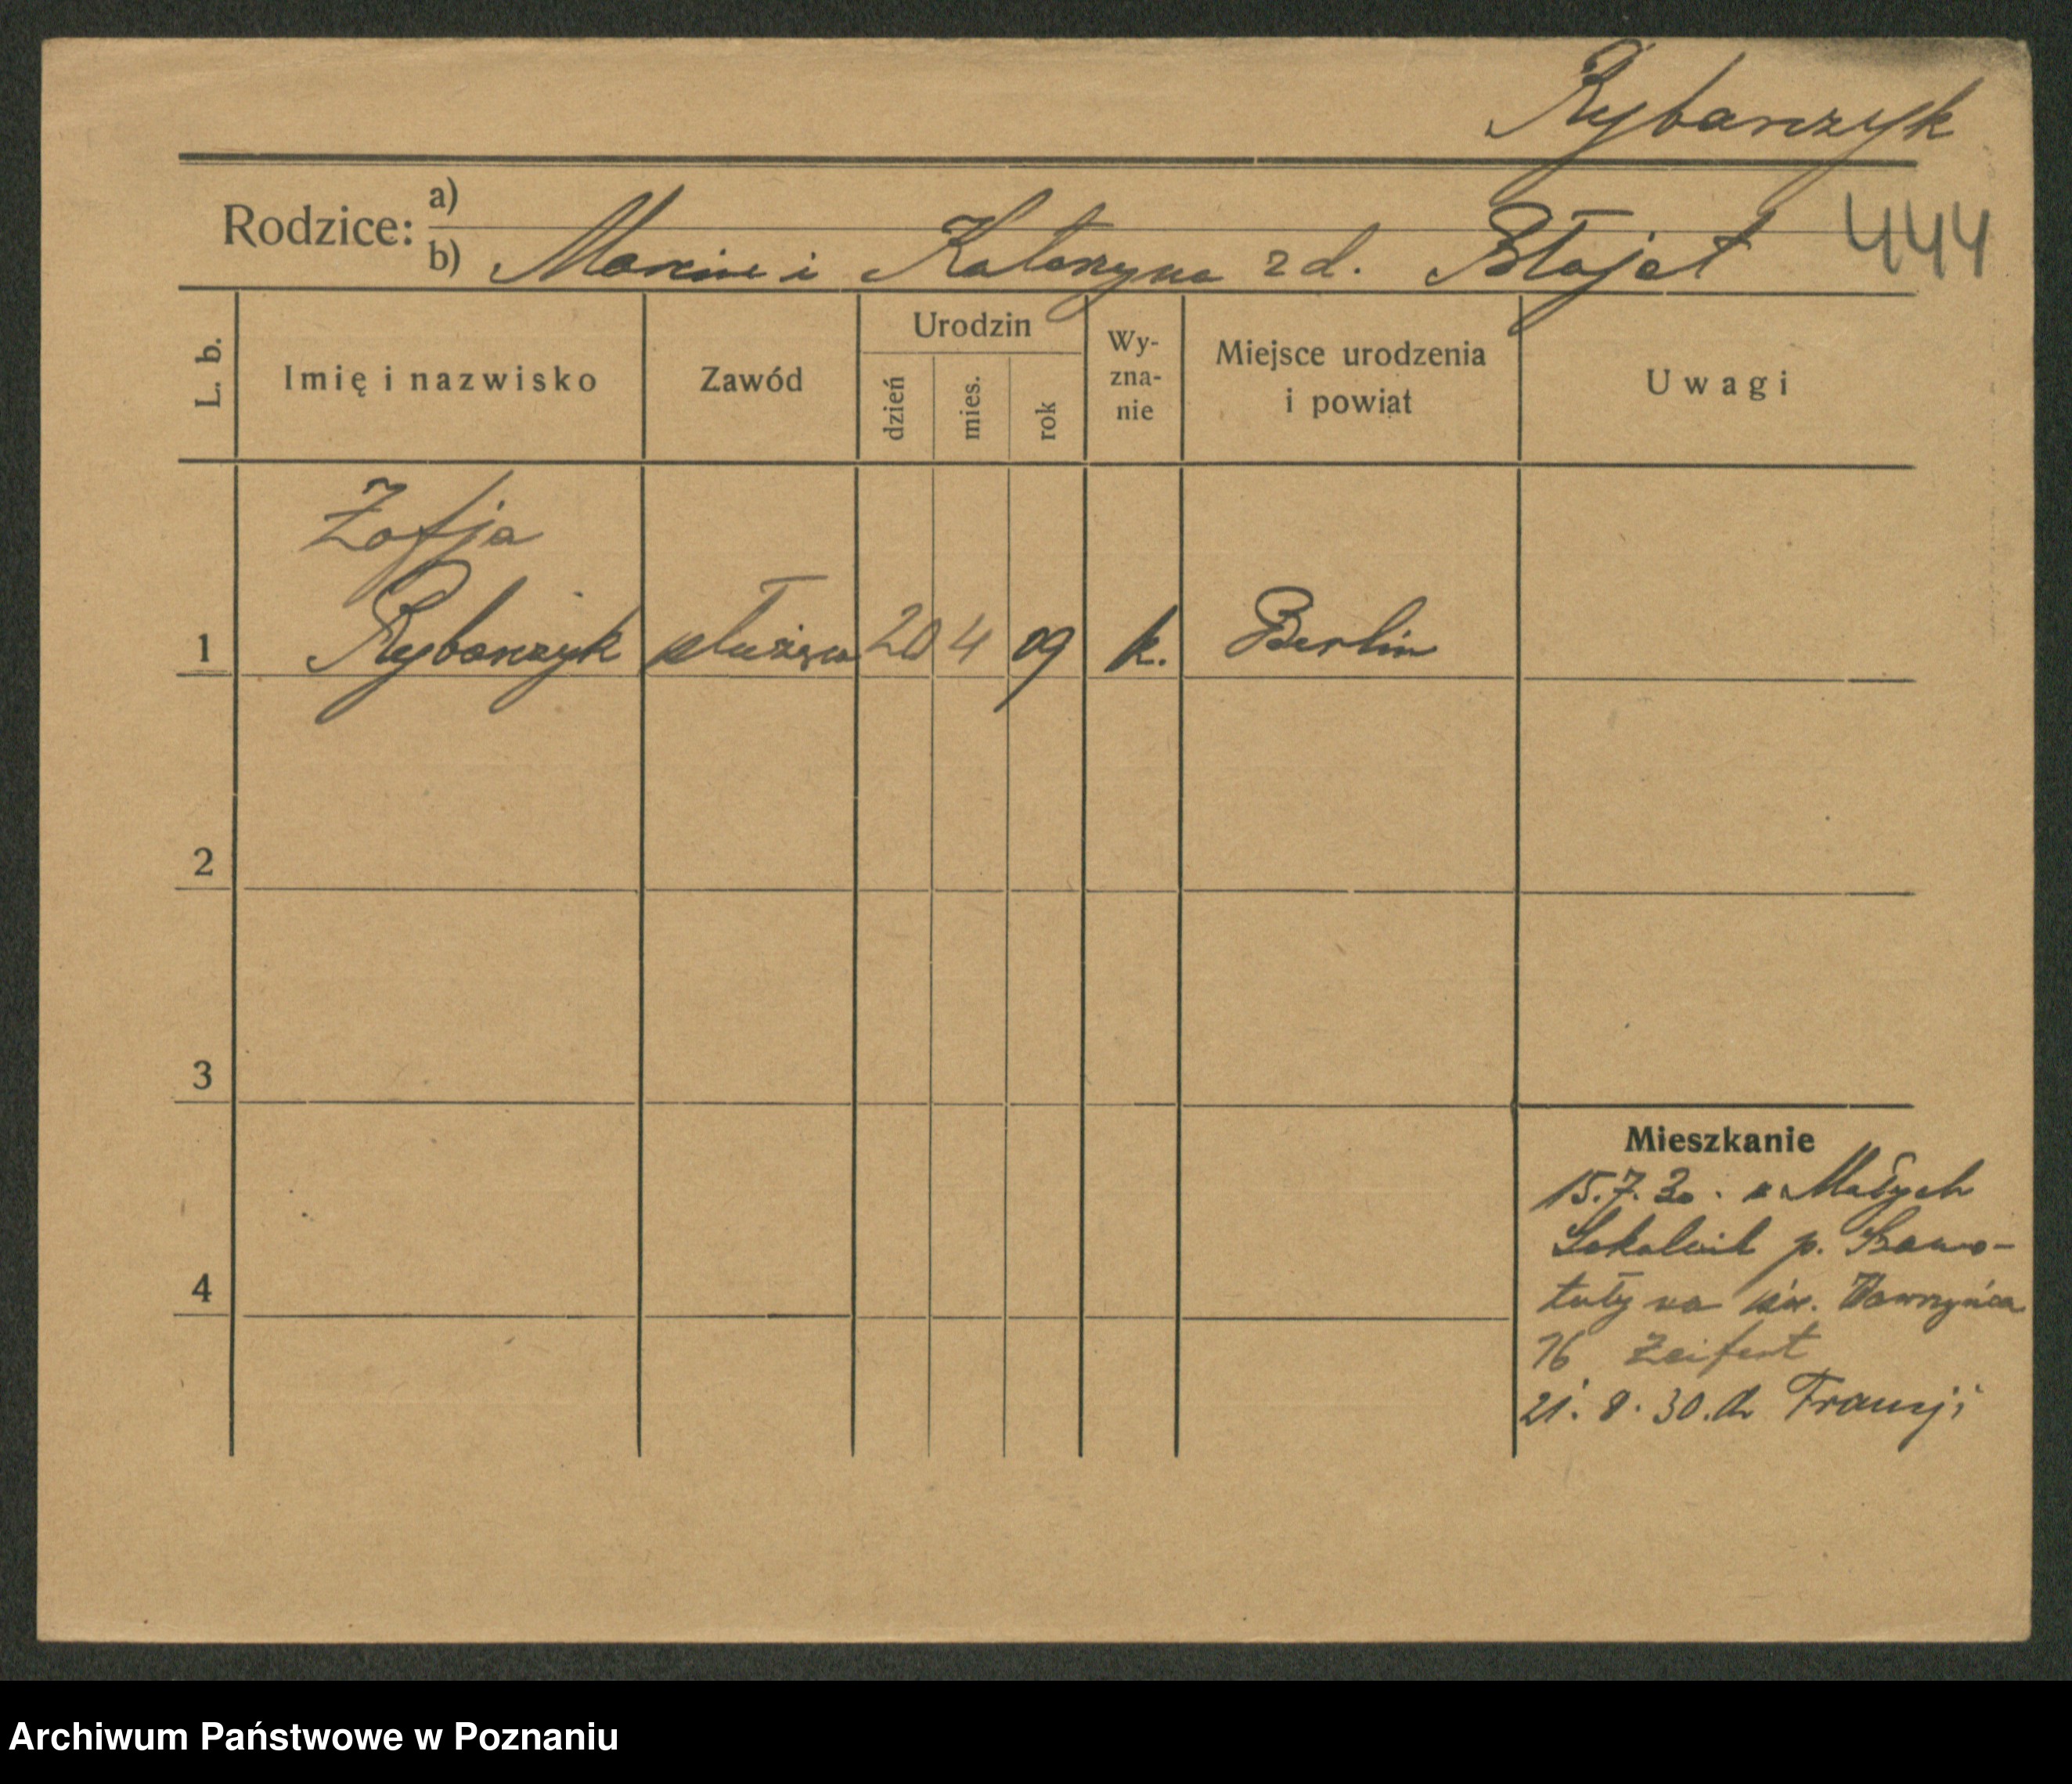 Rybarczyk
Rodzice: a)
b) Marcin i Katarzyna z d. Błajet
444
L. b.
Imię i nazwisko
Zawód
Urodzin
dzień
mies.
rok
Wy-
zna-
nie
Miejsce urodzenia
i powiat
Uwagi
Zofja
1 Rybarczyk służąca 20 4 09 k. Berlin
2
3
4
Mieszkanie
15.7.30. z Małych
Sokolnik p. Szamo-
tuły na św. Wawrzyńca
16 Zeifert
21.8.30. do Francji
Archiwum Państwowe w Poznaniu